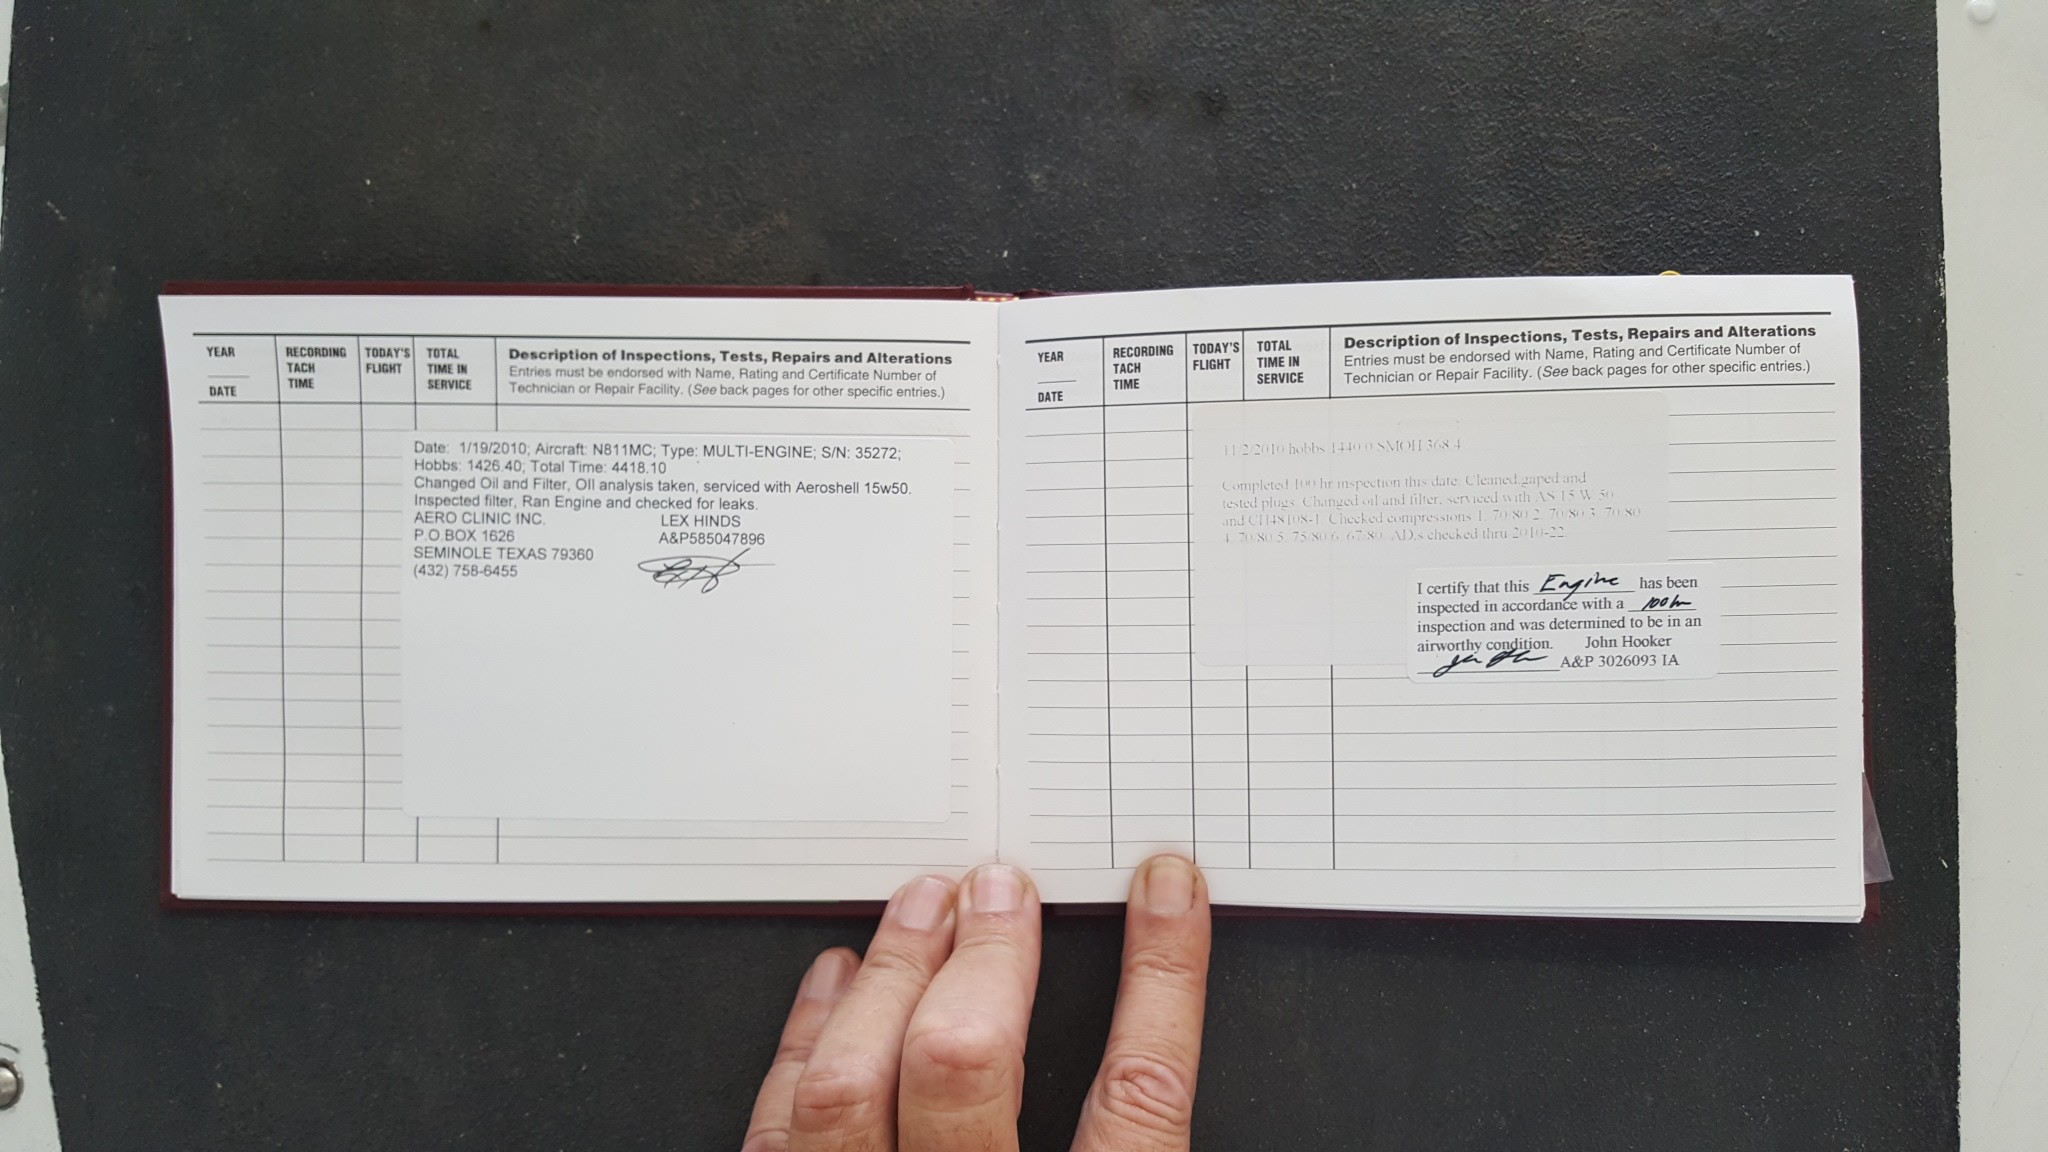 YEAR
DATE
RECORDING
TACH
TIME
TODAY'S
FLIGHT
TOTAL
TIME IN
SERVICE
Description of Inspections, Tests, Repairs and Alterations
Entries must be endorsed with Name, Rating and Certificate Number of
Technician or Repair Facility. (See back pages for other specific entries.)
Date: 1/19/2010; Aircraft: N811MC; Type: MULTI-ENGINE; S/N: 35272;
Hobbs: 1426.40; Total Time: 4418.10
Changed Oil and Filter, OIl analysis taken, serviced with Aeroshell 15w50.
Inspected filter, Ran Engine and checked for leaks.
AERO CLINIC INC. LEX HINDS
P.O.BOX 1626 A&P585047896
SEMINOLE TEXAS 79360
(432) 758-6455
YEAR
DATE
RECORDING
TACH
TIME
TODAY'S
FLIGHT
TOTAL
TIME IN
SERVICE
Description of Inspections, Tests, Repairs and Alterations
Entries must be endorsed with Name, Rating and Certificate Number of
Technician or Repair Facility. (See back pages for other specific entries.)
hobbs 1440.0 SMOH 368.4
Completed 100 hr inspection this date. Cleaned,gaped and
tested plugs. Changed oil and filter, serviced with AS 15 W 50
and CH48108-1. Checked compressions 1. 70/80 2. 70/80 3. 70/80
4. 70/80 5. 75/80 6. 67/80. AD,s checked thru 2010-22
I certify that this Engine has been
inspected in accordance with a 100 hr
inspection and was determined to be in an
airworthy condition. John Hooker
A&P 3026093 IA